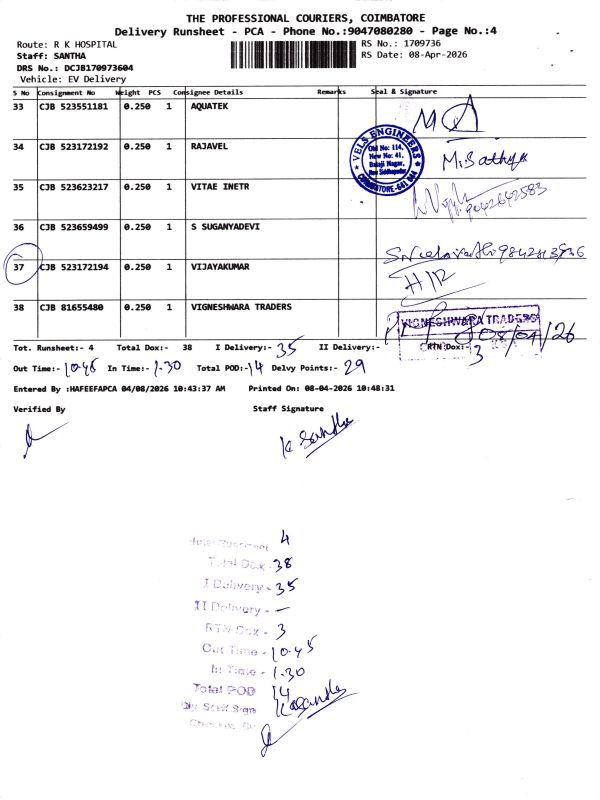 THE PROFESSIONAL COURIERS, COIMBATORE
Delivery Runsheet - PCA - Phone No.:9047080280 - Page No.:4
Route: R K HOSPITAL
RS No.: 1709736
Staff: SANTHA
RS Date: 08-Apr-2026
DRS No.: DCJB170973604
Vehicle: EV Delivery
S No Consignment No Weight PCS Consignee Details Remarks Seal & Signature
33 CJB 523551181 0.250 1 AQUATEK
VELS ENGINEERS
Old No: 114,
New No: 41,
Balaji Nagar,
COIMBATORE-641 044
34 CJB 523172192 0.250 1 RAJAVEL M. Sathya
35 CJB 523623217 0.250 1 VITAE INETR 9042642583
36 CJB 523659499 0.250 1 S SUGANYADEVI
37 CJB 523172194 0.250 1 VIJAYAKUMAR H/R
38 CJB 81655480 0.250 1 VIGNESHWARA TRADERS
VIGNESHWARA TRADERS
08/04/26
Tot. Runsheet:- 4 Total Dox:- 38 I Delivery:- 35 II Delivery:- RTN Dox:- 3
Out Time:- 10.45 In Time:- 1.30 Total POD:- 14 Delvy Points:- 29
Entered By :HAFEEFAPCA 04/08/2026 10:43:37 AM Printed On: 08-04-2026 10:48:31
Verified By Staff Signature
K Santha
Total Runsheet 4
Total Dox - 38
I Delivery - 35
II Delivery - –
RTN Dox - 3
Out Time - 10.45
In Time - 1.30
Total POD 14
Dly. Staff Sign K Santha